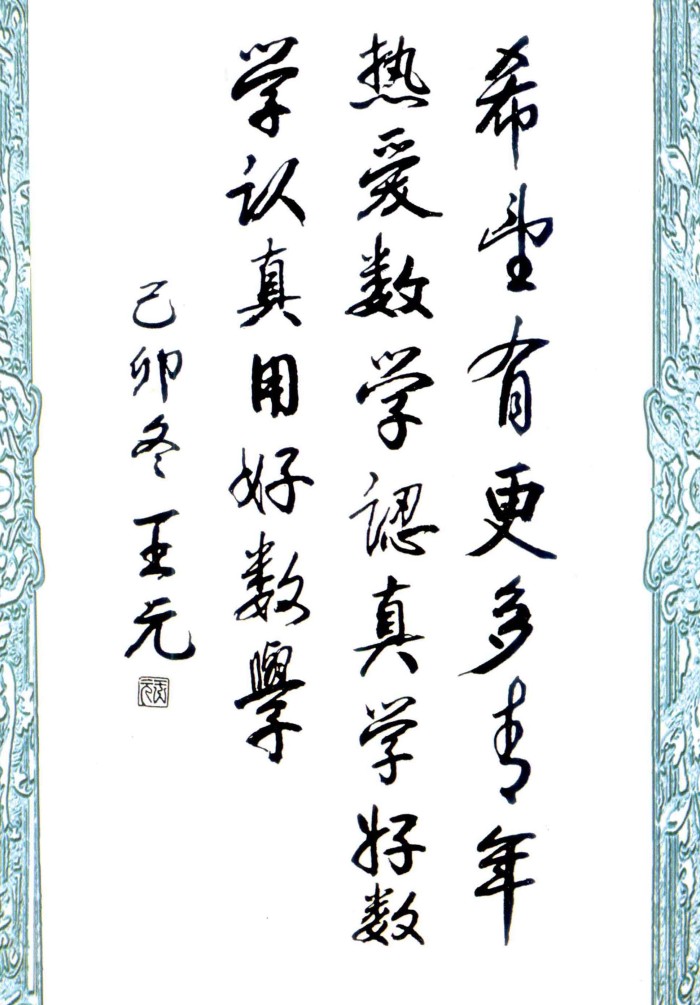 希望有更多青年
热爱数学認真学好数
学认真用好数學
己卯冬王元